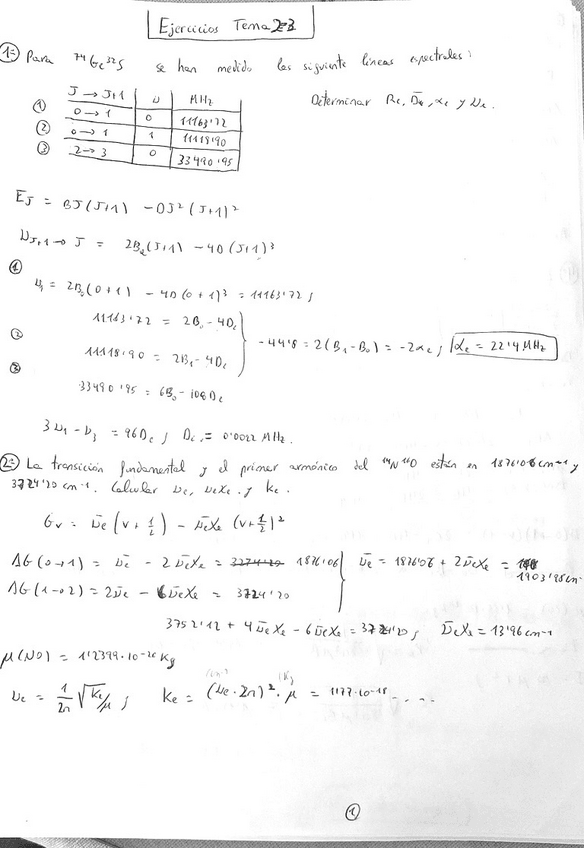 Ejercicios Tema 2-3
1= Para ⁷⁴Ge³²S se han medido las siguiente lineas espectrales:
J → J+1 υ MHz
① 0 → 1 0 11163'72
② 0 → 1 1 11118'90
③ 2 → 3 0 33490'95
Determinar Re, D̄e, αe y νe.
EJ = BJ(J+1) - DJ²(J+1)²
νJ+1→J = 2Be(J+1) - 4D(J+1)³
①
ν₁ = 2B₀(0+1) - 4D(0+1)³ = 11163'72 ;
11163'72 = 2B₀ - 4De
② 11118'90 = 2B₁ - 4De
- 44'8 = 2(B₁ - B₀) = -2αe ; αe = 22'4 MHz
③ 33490'95 = 6B₀ - 108De
3ν₁ - ν₃ = 96De ; De = 0'0022 MHz.
2= La transición fundamental y el primer armónico del ¹⁴N¹⁶O están en 1876'06 cm-1 y
3724'20 cm-1. Calcular νe, νeXe y ke.
Gv = ν̄e (v + 1/2) - ν̄eXe (v + 1/2)²
ΔG(0→1) = ν̄e - 2ν̄eXe = 1876'06
ΔG(1→02) = 2ν̄e - 6ν̄eXe = 3724'20
ν̄e = 1876'06 + 2ν̄eXe = 1903'98 cm-
3752'12 + 4ν̄eXe - 6ν̄eXe = 3724'20 ; ν̄eXe = 13'96 cm-1
μ(NO) = 1'2399·10-26 Kg
νe = 1/2π √Ke/μ ; Ke = (νe·2π)²·μ = 1177·10-18 - . . .
①